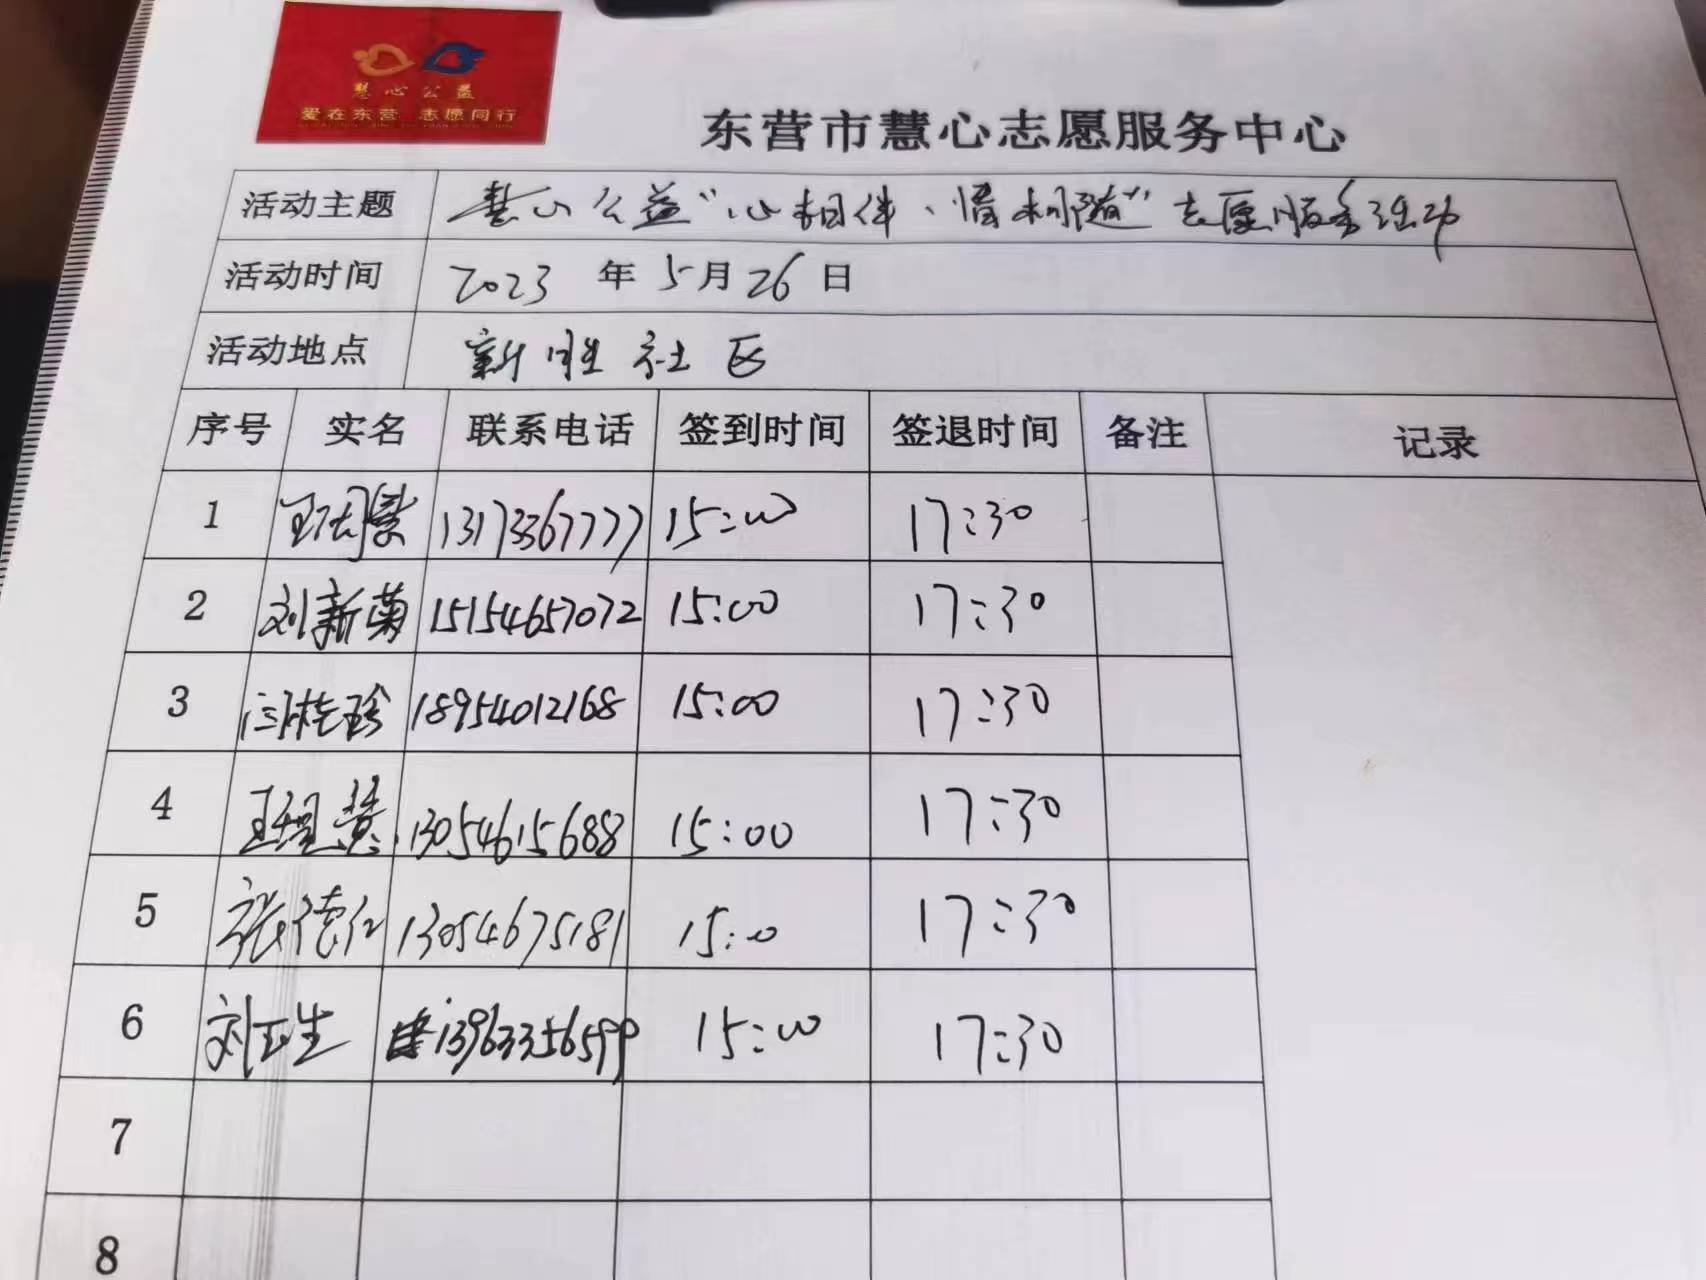 慧心公益
爱在东营 志愿同行
东营市慧心志愿服务中心
活动主题 慧心公益“心相伴、情相随”志愿服务活动
活动时间 2023 年 5 月 26 日
活动地点 新胜社区
序号 实名 联系电话 签到时间 签退时间 备注 记录
1 13173367777 15:00 17:30
2 刘新菊 15154657072 15:00 17:30
3 闫桂珍 18954012168 15:00 17:30
4 13054615688 15:00 17:30
5 张德仁 13054675181 15:00 17:30
6 刘玉生 13963356599 15:00 17:30
7
8